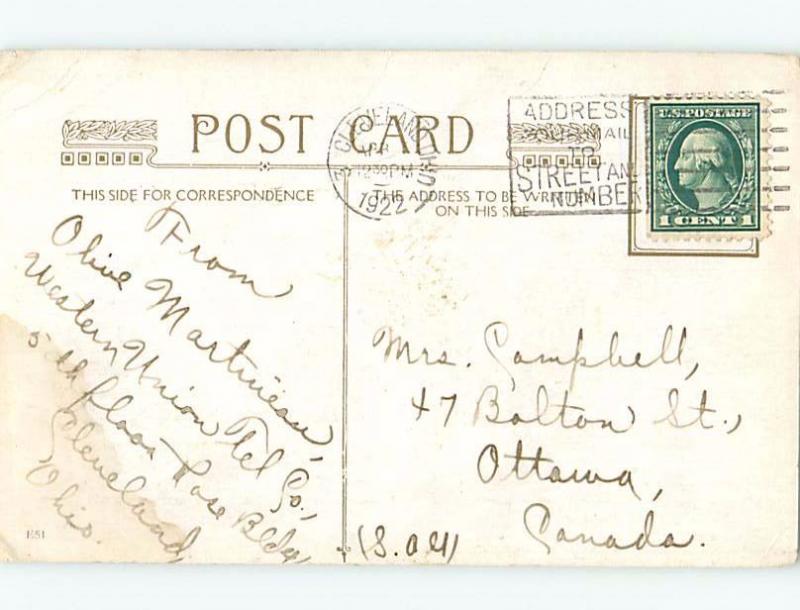 POST CARD
CLEVELAND, OHIO
APR
12 30 PM
1922
ADDRESS
YOUR MAIL
TO
STREET AND
NUMBER
U.S. POSTAGE
1 CENT 1
THIS SIDE FOR CORRESPONDENCE
THE ADDRESS TO BE WRITTEN
ON THIS SIDE
From
Olive Martineau,
Western Union Tel Co.,
5th floor Rose Bldg,
Cleveland,
Ohio.
Mrs. Campbell,
47 Bolton St.,
Ottawa,
Canada.
E51